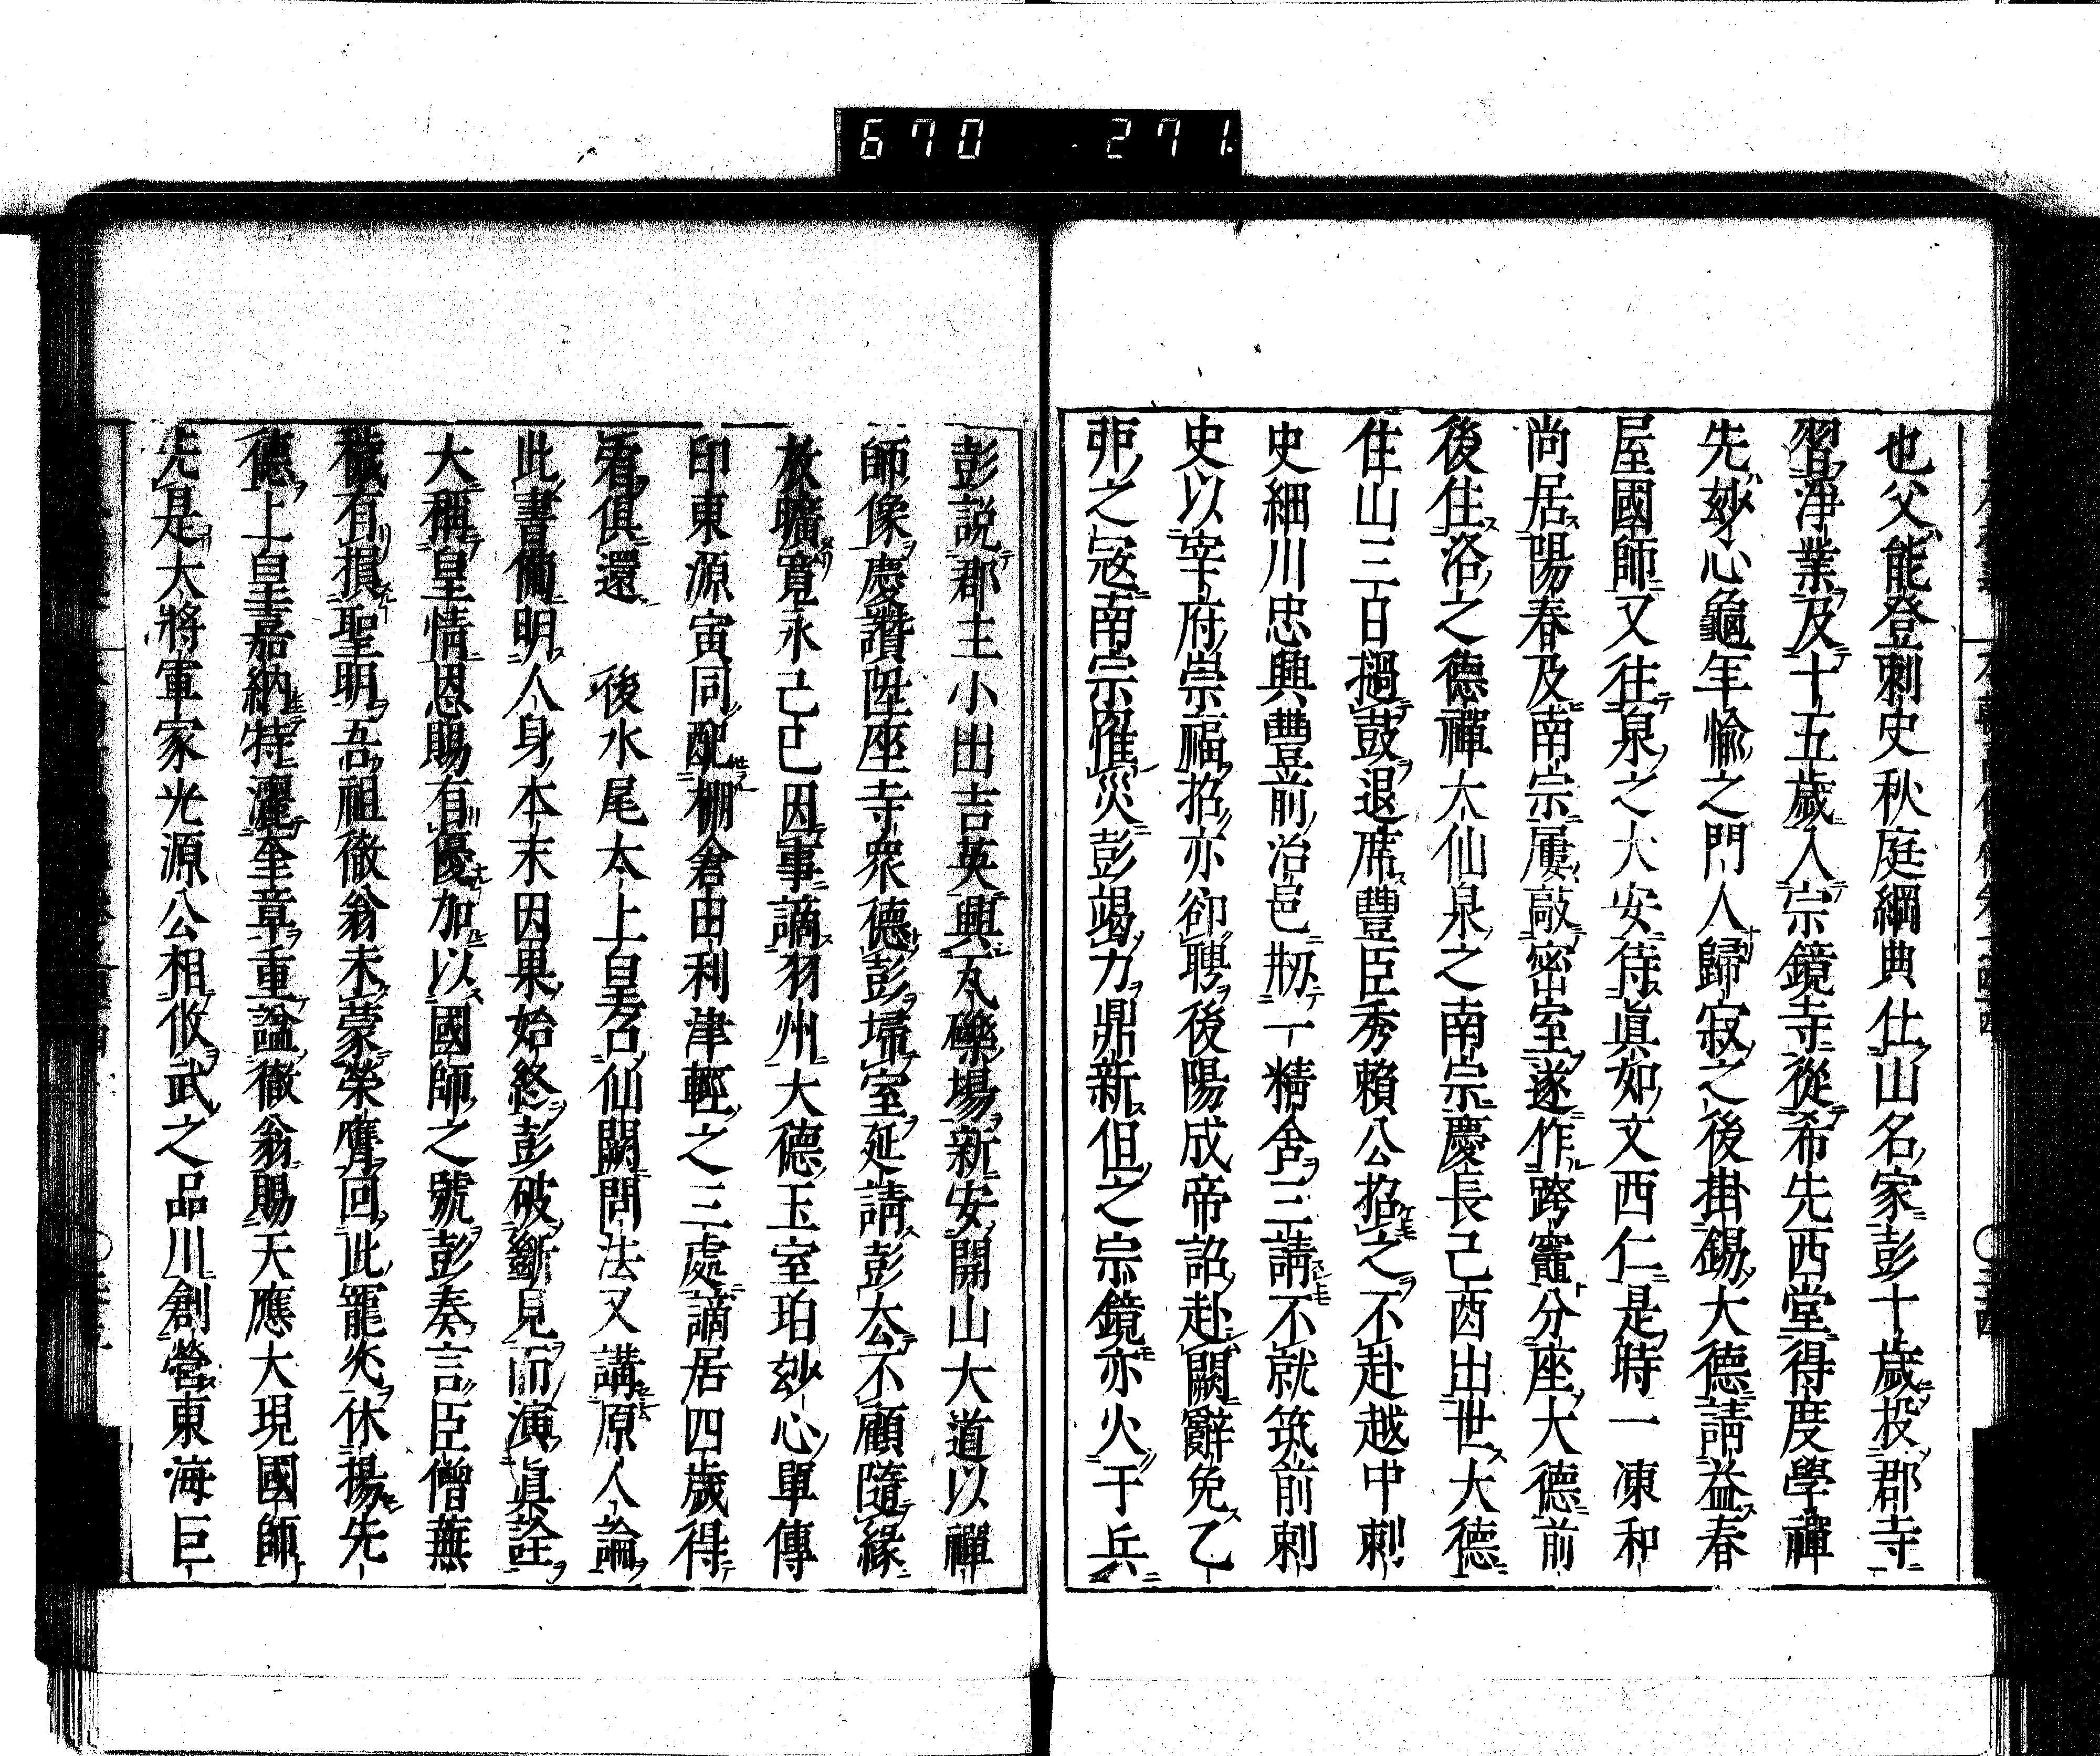 670 271.
也父能登刺史秋庭綱典仕山名家彭十歲投郡寺
習淨業及十五歲入宗鏡寺從希先西堂得度學禪
先妙心龜年愉之門人歸寂之後掛錫大德請益春
屋國師又往泉之大安侍眞如文西仁是時一凍和
尚居陽春及南宗屢敲密室遂作跨竈分座大德前
後住洛之德禪大仙泉之南宗慶長己酉出世大德
住山三日撾鼓退席豐臣秀賴公招之不赴越中刺
史細川忠興豐前治邑剏一精舍三請不就筑前刺
史以宰府崇福招亦卻聘後陽成帝詔赴闕辭免乙
卯之寇南宗罹災彭竭力鼎新但之宗鏡亦火于兵
彭説郡主小出吉英興瓦礫場新安開山大道以禪
師像慶讚陞座寺衆德彭埽室延請彭公不顧隨緣
放曠寬永己巳因事謫羽州大德玉室珀妙心單傳
印東源寅同配棚倉由利津輕之三處謫居四歲得
看俱還 後水尾太上皇召仙闕問法又講原人論
此書備明人身本末因果始終彭破斷見而演眞詮
大稱皇情恩賜有優加以國師之號彭奏言臣僧蕪
穢有損聖明吾祖徹翁未蒙榮膺回此寵光休揚先
德上皇嘉納特灑奎章重謚徹翁賜天應大現國師
先是大將軍家光源公相攸武之品川創營東海巨